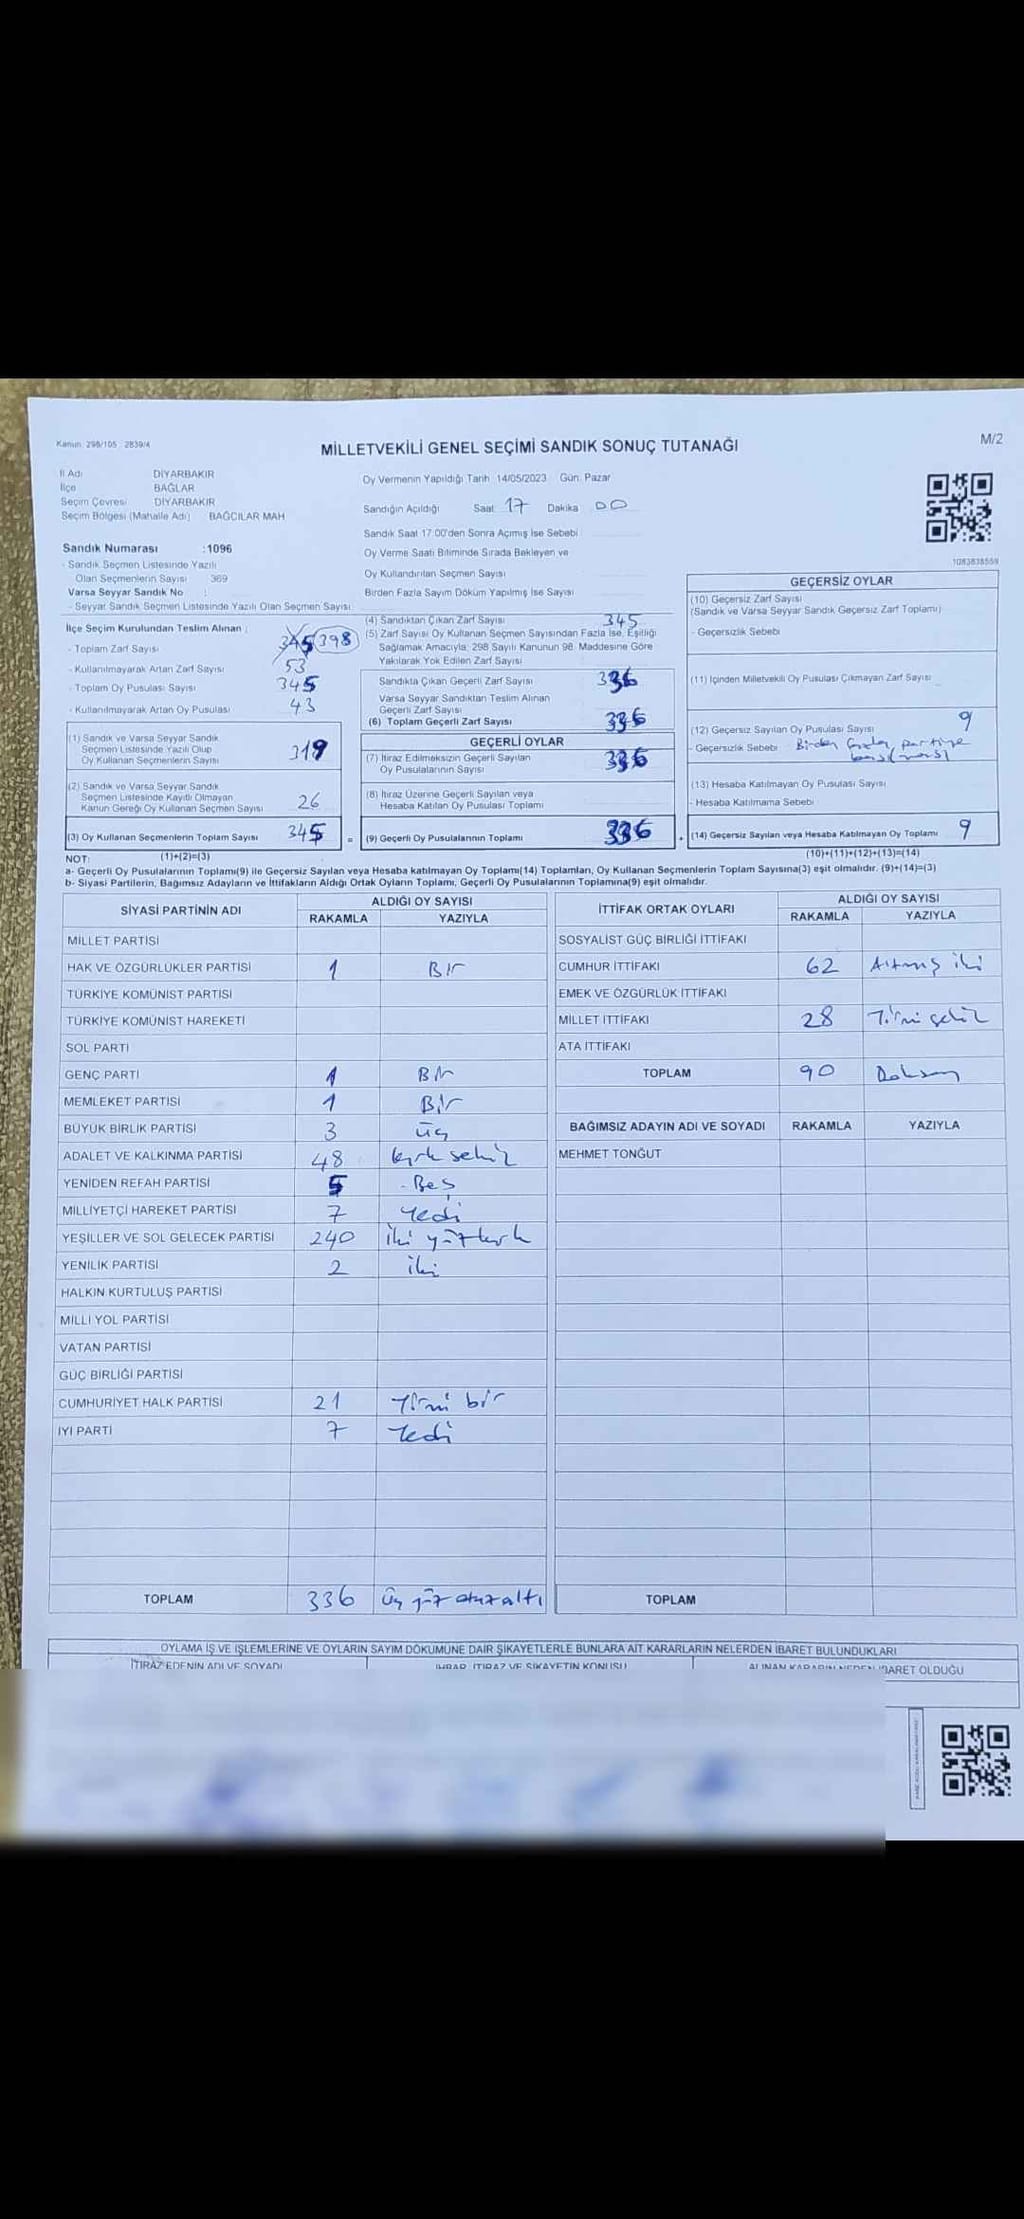 Kanun: 298/105 , 2839/4
MİLLETVEKİLİ GENEL SEÇİMİ SANDIK SONUÇ TUTANAĞI
M/2
İl Adı DİYARBAKIR
İlçe BAĞLAR
Seçim Çevresi DİYARBAKIR
Seçim Bölgesi (Mahalle Adı) BAĞCILAR MAH
Oy Vermenin Yapıldığı Tarih 14/05/2023 Gün: Pazar
Sandığın Açıldığı Saat 17 Dakika 00
Sandık Saat 17:00'den Sonra Açımış İse Sebebi
Oy Verme Saati Bitiminde Sırada Bekleyen ve
Oy Kullandırılan Seçmen Sayısı
Birden Fazla Sayım Döküm Yapılmış İse Sayısı
1083838559
Sandık Numarası :1096
- Sandık Seçmen Listesinde Yazılı
Olan Seçmenlerin Sayısı 369
Varsa Seyyar Sandık No :
- Seyyar Sandık Seçmen Listesinde Yazılı Olan Seçmen Sayısı:
İlçe Seçim Kurulundan Teslim Alınan ;
- Toplam Zarf Sayısı 345 398
- Kullanılmayarak Artan Zarf Sayısı 53
- Toplam Oy Pusulası Sayısı 345
- Kullanılmayarak Artan Oy Pusulası 43
(1) Sandık ve Varsa Seyyar Sandık
Seçmen Listesinde Yazılı Olup
Oy Kullanan Seçmenlerin Sayısı 319
(2) Sandık ve Varsa Seyyar Sandık
Seçmen Listesinde Kayıtlı Olmayan
Kanun Gereği Oy Kullanan Seçmen Sayısı 26
(3) Oy Kullanan Seçmenlerin Toplam Sayısı 345 =
(1)+(2)=(3)
(4) Sandıktan Çıkan Zarf Sayısı 345
(5) Zarf Sayısı Oy Kullanan Seçmen Sayısından Fazla İse, Eşitliği
Sağlamak Amacıyla; 298 Sayılı Kanunun 98. Maddesine Göre
Yakılarak Yok Edilen Zarf Sayısı
Sandıkta Çıkan Geçerli Zarf Sayısı 336
Varsa Seyyar Sandıktan Teslim Alınan
Geçerli Zarf Sayısı
(6) Toplam Geçerli Zarf Sayısı 336
GEÇERLİ OYLAR
(7) İtiraz Edilmeksizin Geçerli Sayılan
Oy Pusulalarının Sayısı 336
(8) İtiraz Üzerine Geçerli Sayılan veya
Hesaba Katılan Oy Pusulası Toplamı
(9) Geçerli Oy Pusulalarının Toplamı 336 +
GEÇERSİZ OYLAR
(10) Geçersiz Zarf Sayısı
(Sandık ve Varsa Seyyar Sandık Geçersiz Zarf Toplamı)
- Geçersizlik Sebebi
(11) İçinden Milletvekili Oy Pusulası Çıkmayan Zarf Sayısı
(12) Geçersiz Sayılan Oy Pusulası Sayısı 9
- Geçersizlik Sebebi Birden fazla partiye
(13) Hesaba Katılmayan Oy Pusulası Sayısı
- Hesaba Katılmama Sebebi
(14) Geçersiz Sayılan veya Hesaba Katılmayan Oy Toplamı 9
(10)+(11)+(12)+(13)=(14)
NOT:
a- Geçerli Oy Pusulalarının Toplamı(9) ile Geçersiz Sayılan veya Hesaba Katılmayan Oy Toplamı(14) Toplamları, Oy Kullanan Seçmenlerin Toplam Sayısına(3) eşit olmalıdır. (9)+(14)=(3)
b- Siyasi Partilerin, Bağımsız Adayların ve İttifakların Aldığı Ortak Oyların Toplamı, Geçerli Oy Pusulalarının Toplamına(9) eşit olmalıdır.
SİYASİ PARTİNİN ADI ALDIĞI OY SAYISI
RAKAMLA YAZIYLA
MİLLET PARTİSİ
HAK VE ÖZGÜRLÜKLER PARTİSİ 1 Bir
TÜRKİYE KOMÜNİST PARTİSİ
TÜRKİYE KOMÜNİST HAREKETİ
SOL PARTİ
GENÇ PARTİ 1 Bir
MEMLEKET PARTİSİ 1 Bir
BÜYÜK BİRLİK PARTİSİ 3 üç
ADALET VE KALKINMA PARTİSİ 48 kırk sekiz
YENİDEN REFAH PARTİSİ 5 Beş
MİLLİYETÇİ HAREKET PARTİSİ 7 Yedi
YEŞİLLER VE SOL GELECEK PARTİSİ 240 iki yüzkırk
YENİLİK PARTİSİ 2 iki
HALKIN KURTULUŞ PARTİSİ
MİLLİ YOL PARTİSİ
VATAN PARTİSİ
GÜÇ BİRLİĞİ PARTİSİ
CUMHURİYET HALK PARTİSİ 21 Yirmi bir
İYİ PARTİ 7 Yedi
TOPLAM 336 üç yüz otuz altı
İTTİFAK ORTAK OYLARI ALDIĞI OY SAYISI
RAKAMLA YAZIYLA
SOSYALİST GÜÇ BİRLİĞİ İTTİFAKI
CUMHUR İTTİFAKI 62 Altmış iki
EMEK VE ÖZGÜRLÜK İTTİFAKI
MİLLET İTTİFAKI 28 Yirmi sekiz
ATA İTTİFAKI
TOPLAM 90 Doksan
BAĞIMSIZ ADAYIN ADI VE SOYADI RAKAMLA YAZIYLA
MEHMET TONĞUT
TOPLAM
OYLAMA İŞ VE İŞLEMLERİNE VE OYLARIN SAYIM DÖKÜMÜNE DAİR ŞİKAYETLERLE BUNLARA AİT KARARLARIN NELERDEN İBARET BULUNDUKLARI
İTİRAZ EDENİN ADI VE SOYADI İHBAR, İTİRAZ VE ŞİKAYETİN KONUSU ALINAN KARARIN NEDEN İBARET OLDUĞU